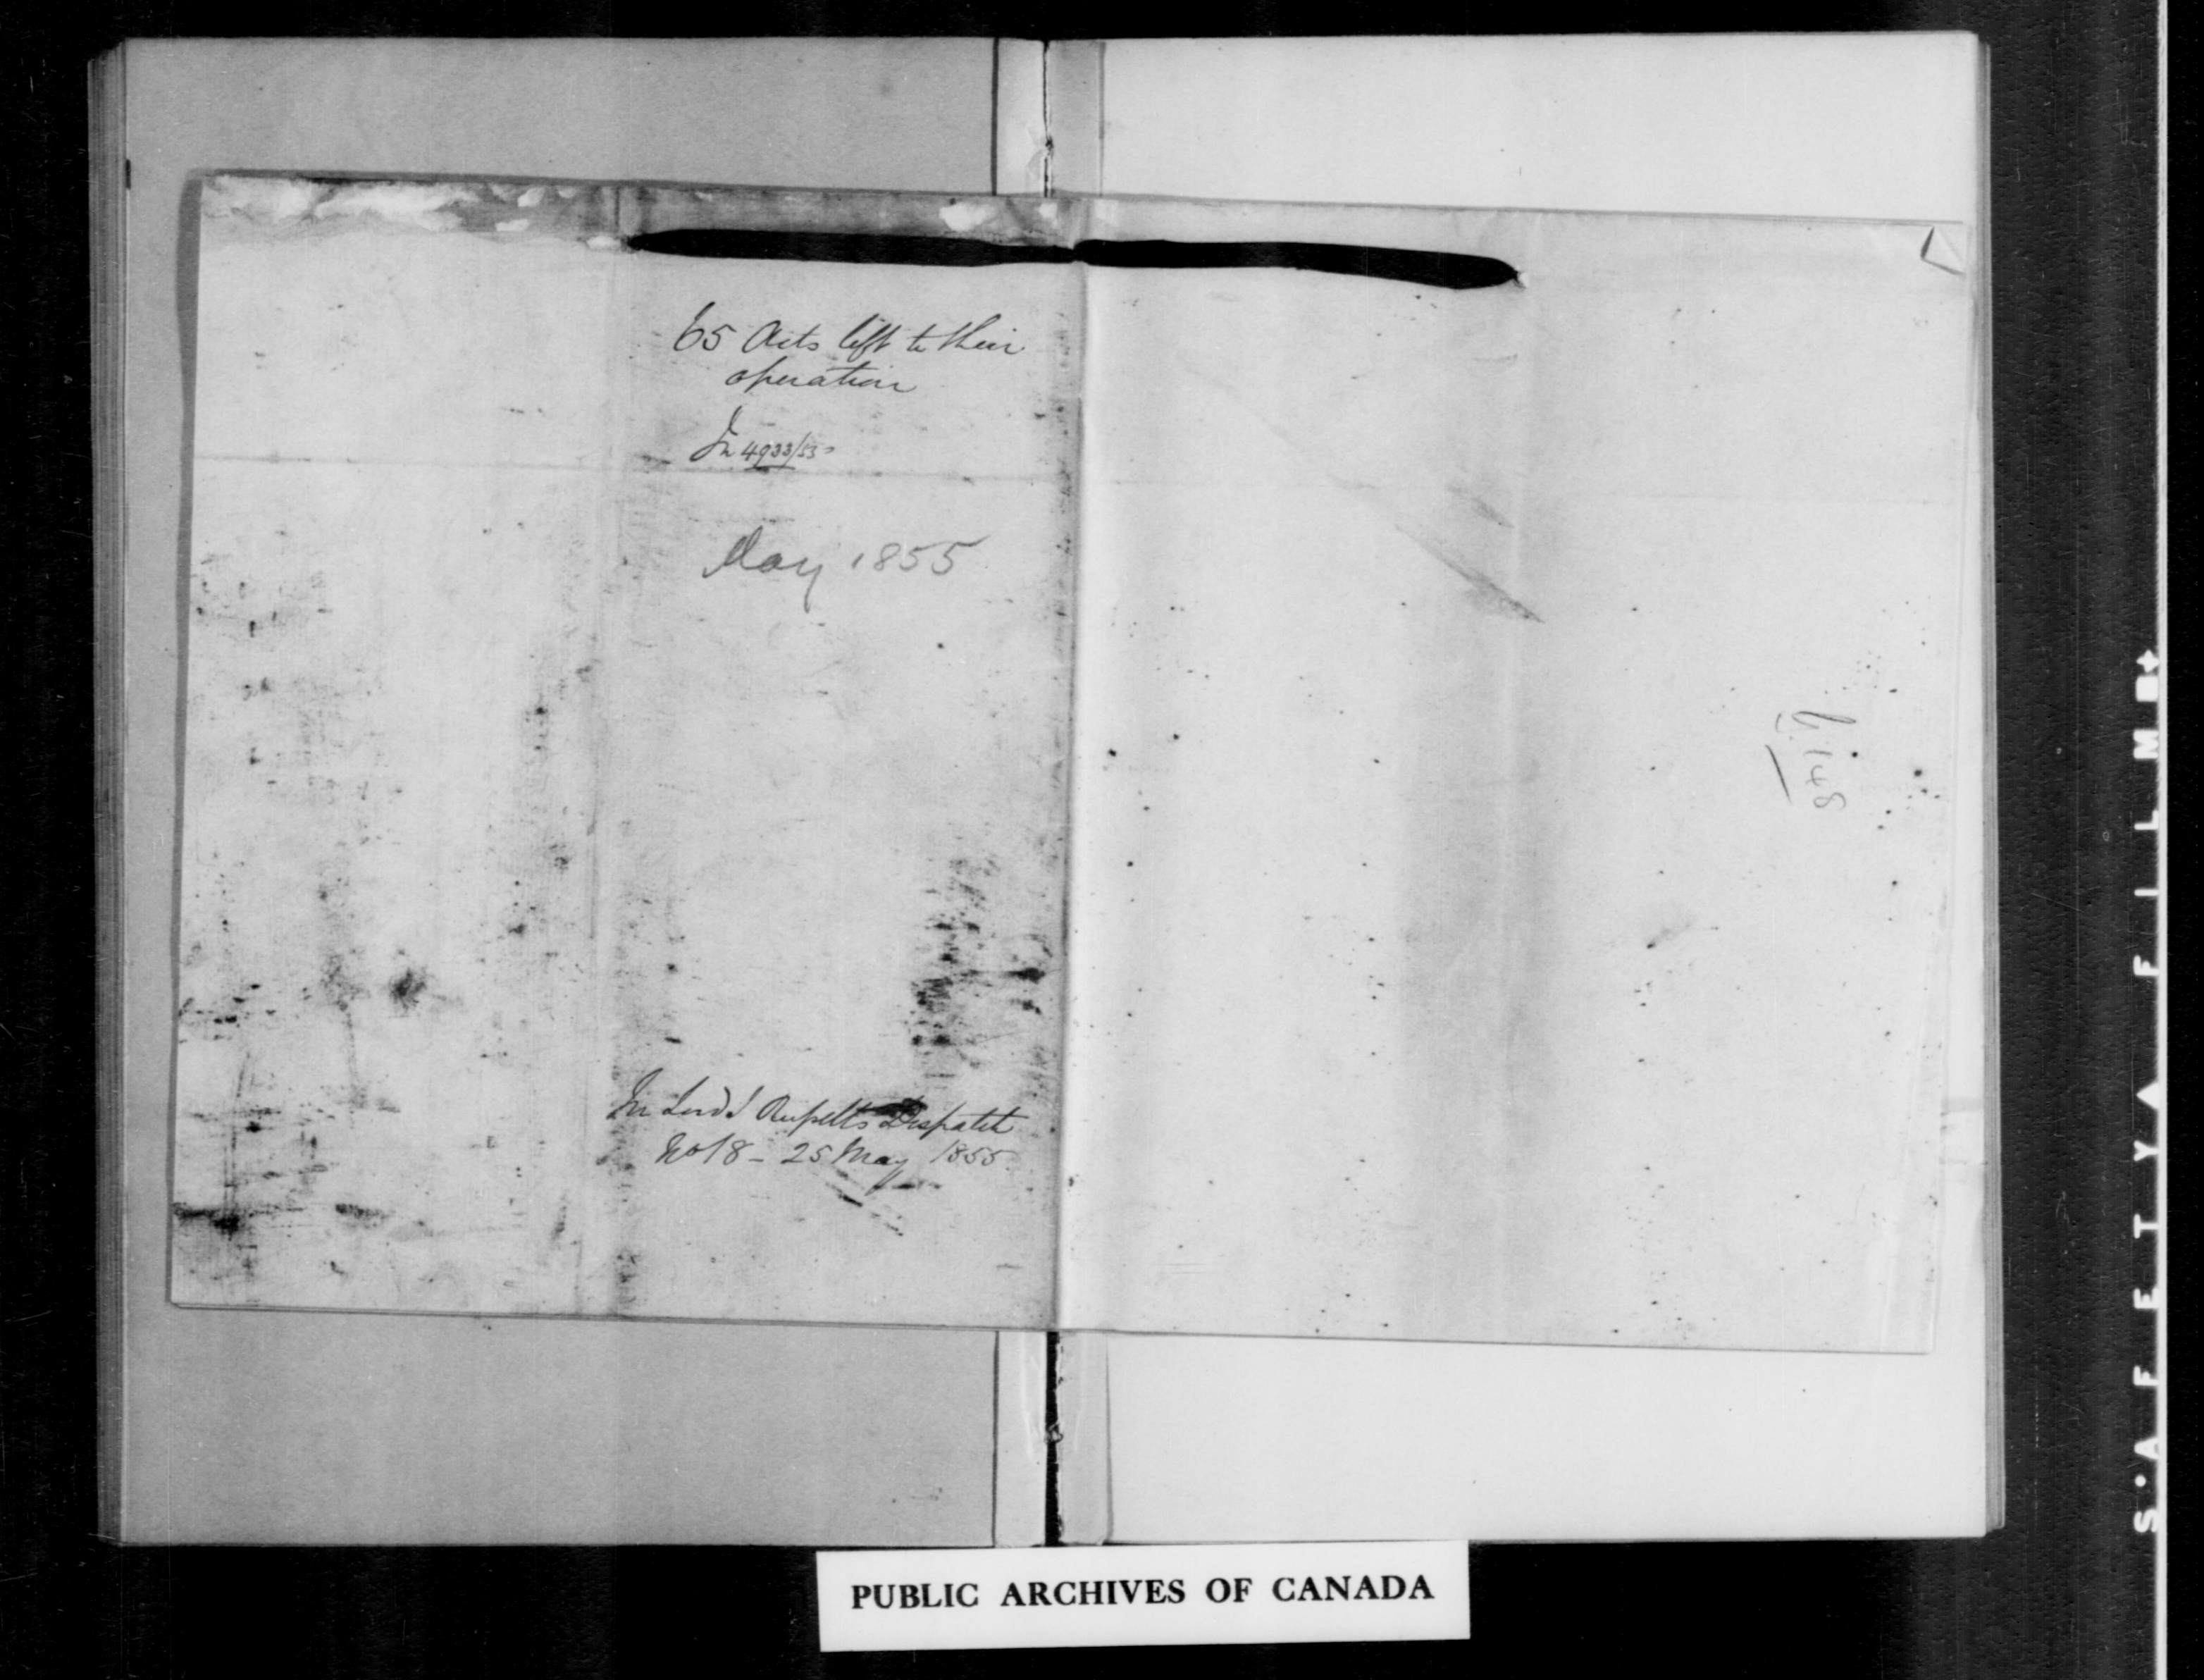 65 Acts left to their
operation
In 4933/55
May 1855
In Lord J Russell's Despatch
No 18 - 25 May 1855
b. 148
PUBLIC ARCHIVES OF CANADA
S.'AFETY▲FILM